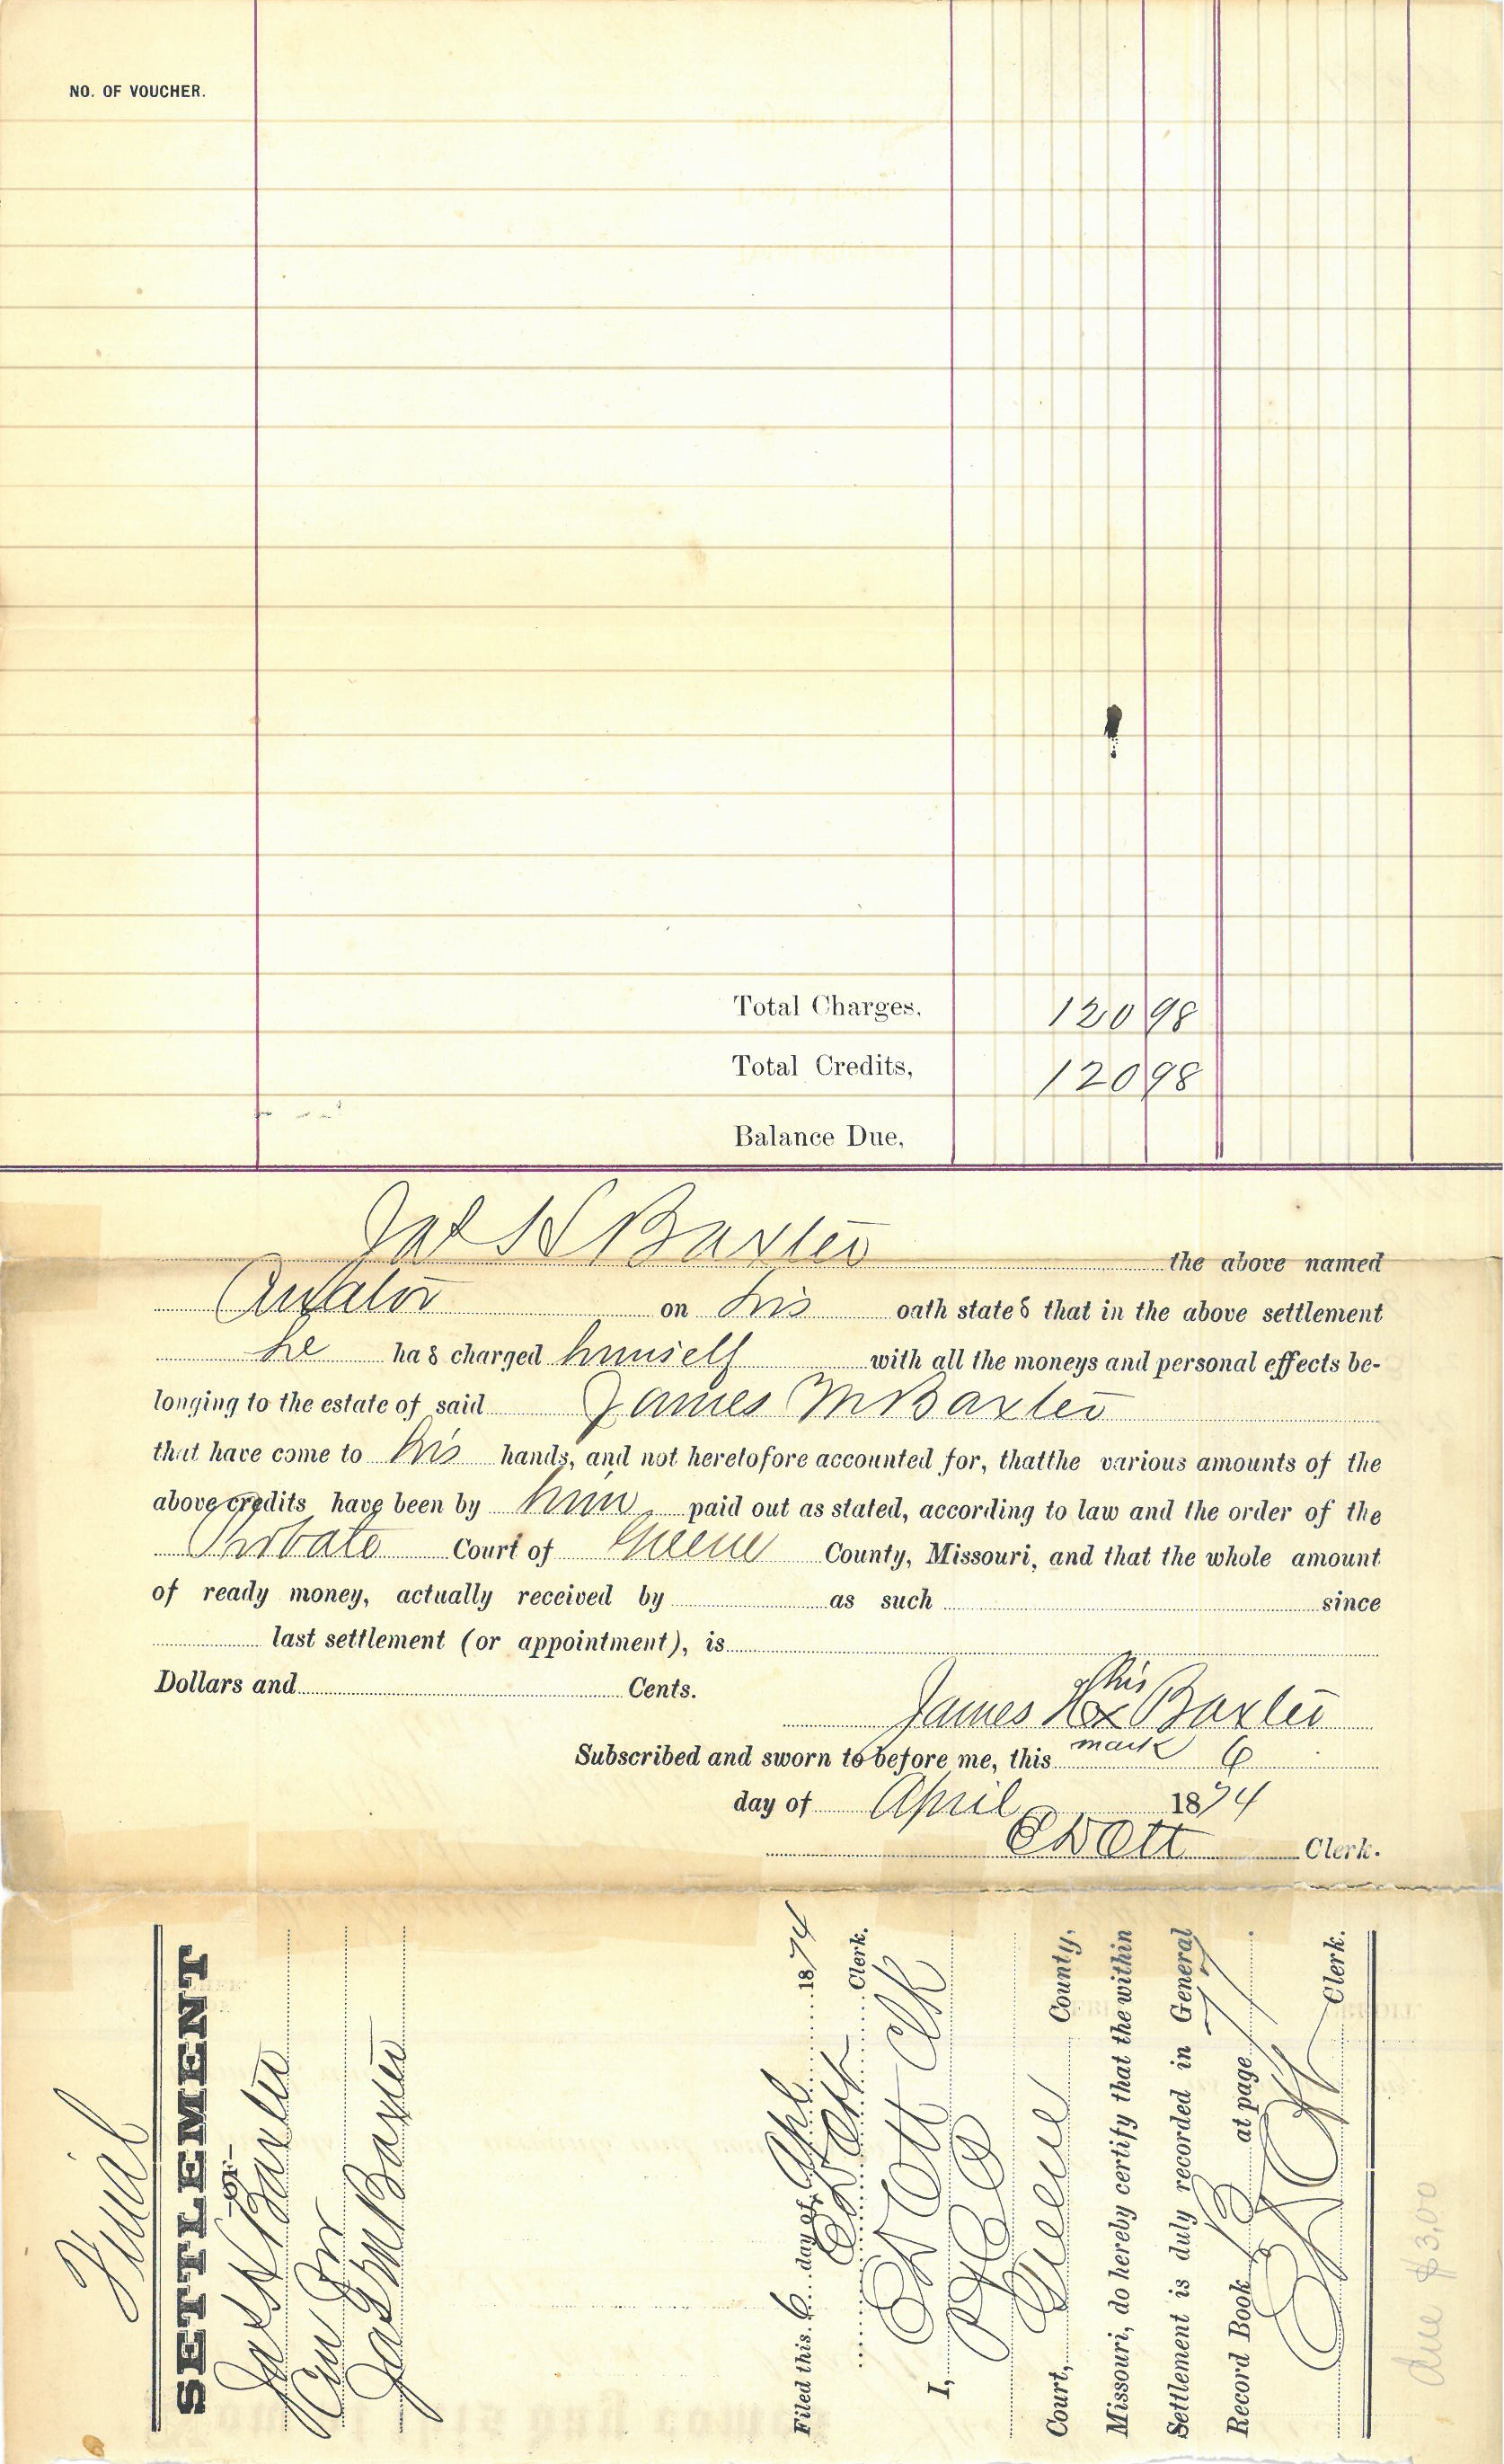 NO. OF VOUCHER.
Total Charges, 120 98
Total Credits, 120 98
Balance Due,
Jas H Baxter the above named
Curator on his oath states that in the above settlement
he has charged himself with all the moneys and personal effects be-
longing to the estate of said James M Baxter
that have come to his hands, and not heretofore accounted for, thatthe various amounts of the
above credits have been by him paid out as stated, according to law and the order of the
Probate Court of Greene County, Missouri, and that the whole amount
of ready money, actually received by as such since
last settlement (or appointment), is
Dollars and Cents.
his
James H x Baxter
mark
Subscribed and sworn to before me, this 6
day of April 1874
E D Ott Clerk.
Final
SETTLEMENT
-OF-
Jas H Baxter
Cur for
Jas M Baxter
Filed this 6 day of Apl 1874
E D Ott Clerk.
I, E D Ott Clk
Court, Greene County,
Missouri, do hereby certify that the within
Settlement is duly recorded in General
Record Book B at page
E D Ott Clerk.
due $3.00